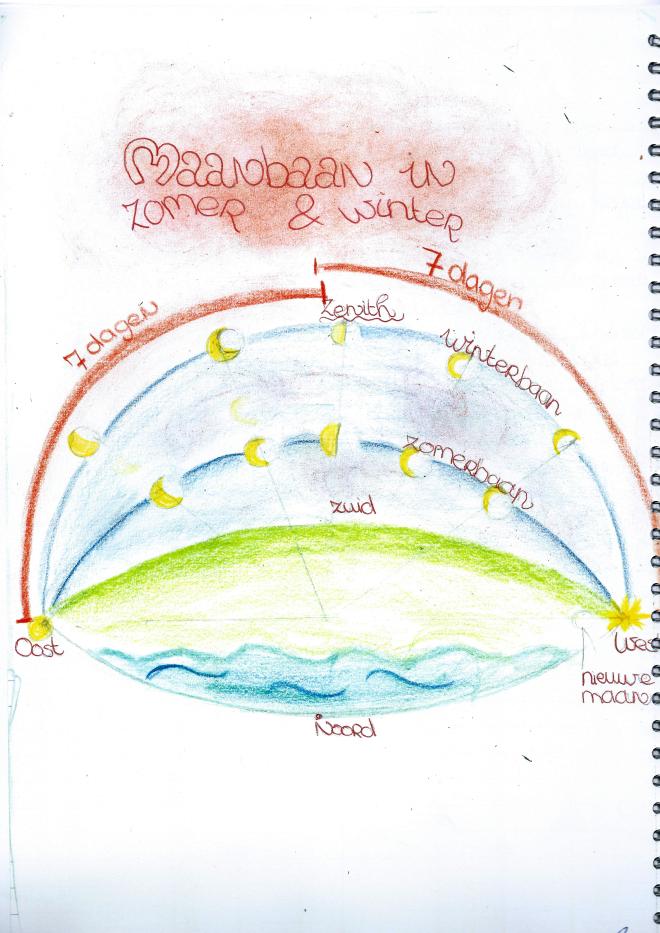 Maanbaan in
zomer & winter
7 dagen
7 dagen
Zenith
winterbaan
zomerbaan
zuid
Oost
Wes
nieuwe
maan
Noord